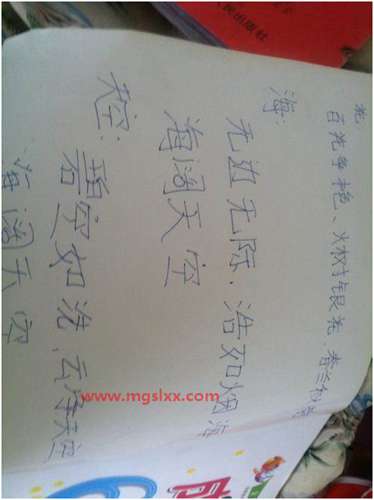 花:
百花争艳、火树银花、春兰秋
海:
无边无际、浩如烟海
海阔天空
天空:
碧空如洗、云
海阔天空
出版社
www.mgslxx.com